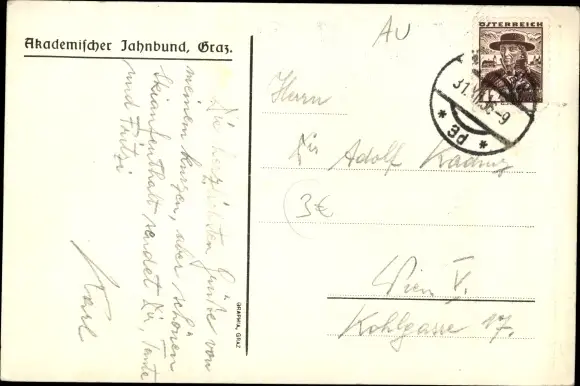 Akademischer Jahnbund, Graz.
AU
ÖSTERREICH
31. 36-9
* *
Die herzlichsten Grüße von
meinem kurzen, aber schönen
Skiaufenthalt sendet Dir, Tante
und Fritzi
Karl
GRAPHIA, GRAZ
Herrn
Dir Adolf
3€
Wien V.
Kohlgasse 17.